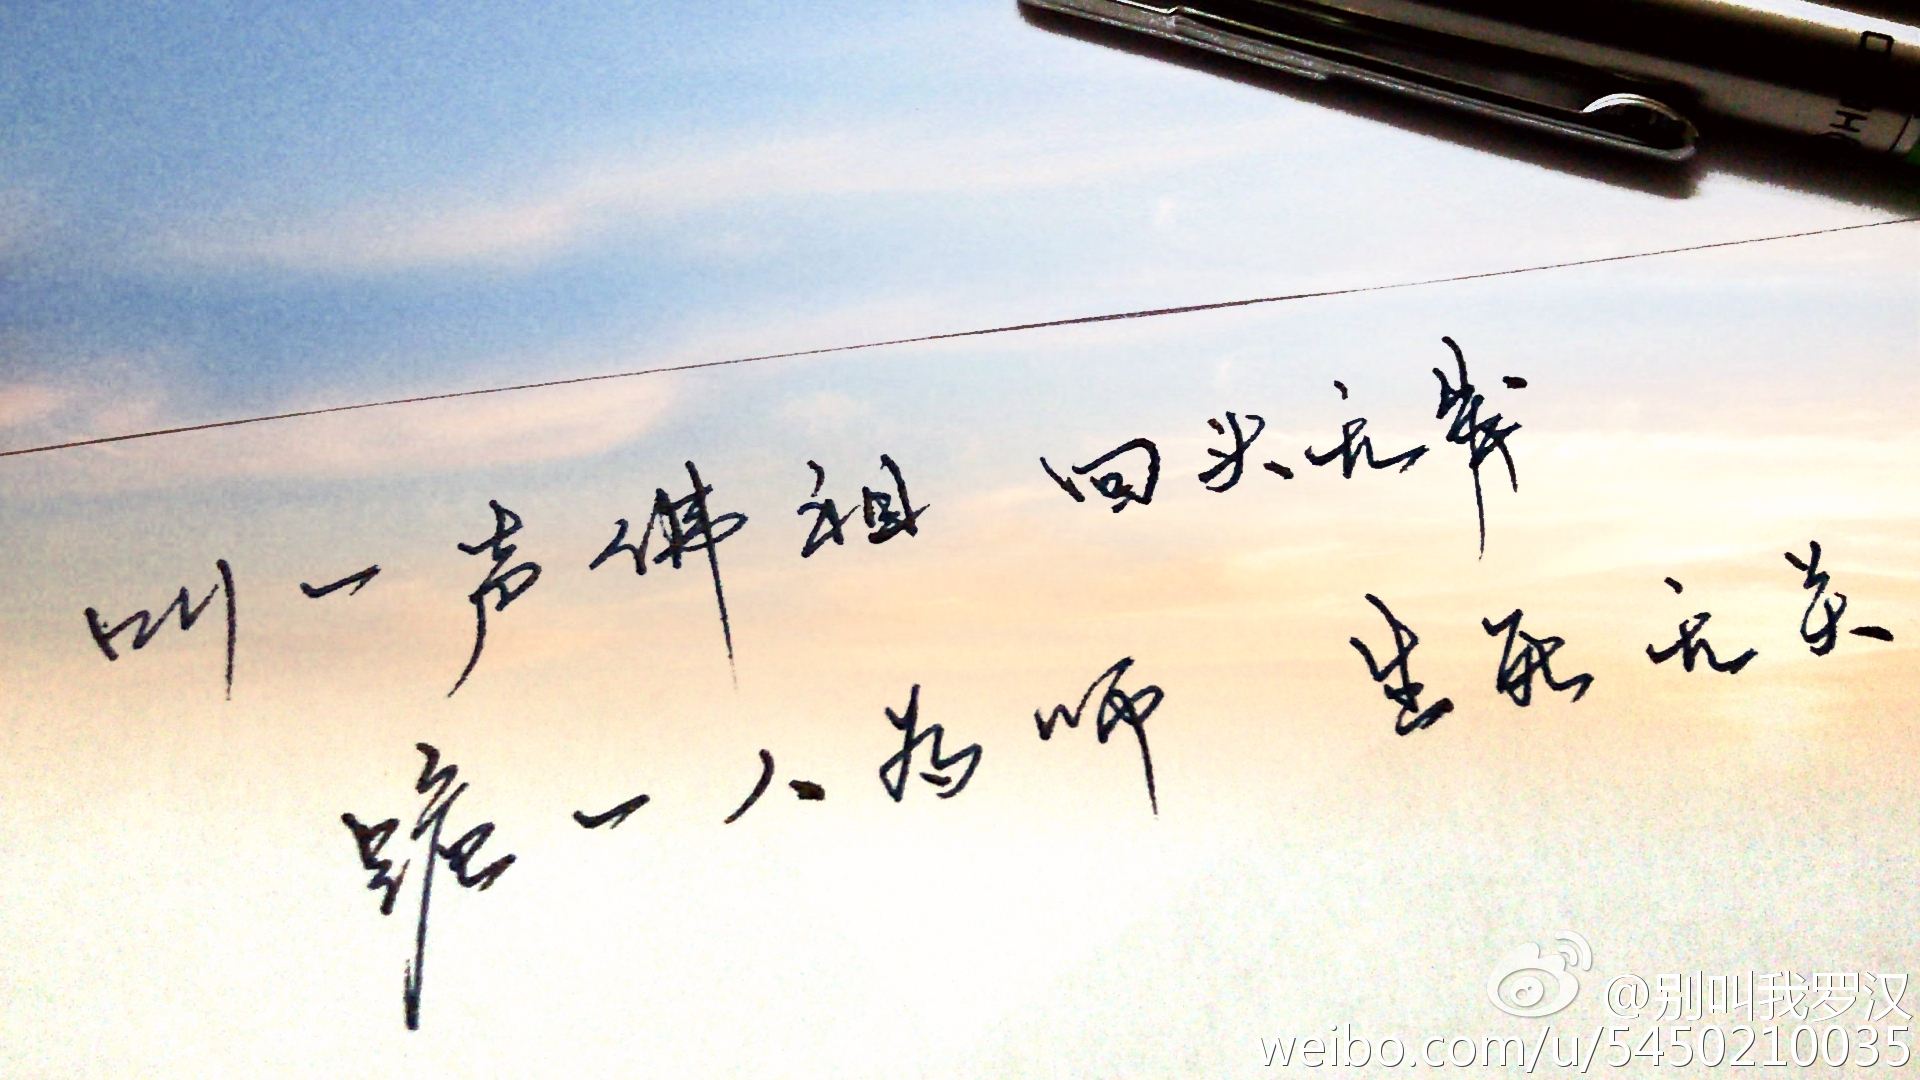 叫一声佛祖 回头无岸
跪一人为师 生死无关
@别叫我罗汉
weibo.com/u/5450210035